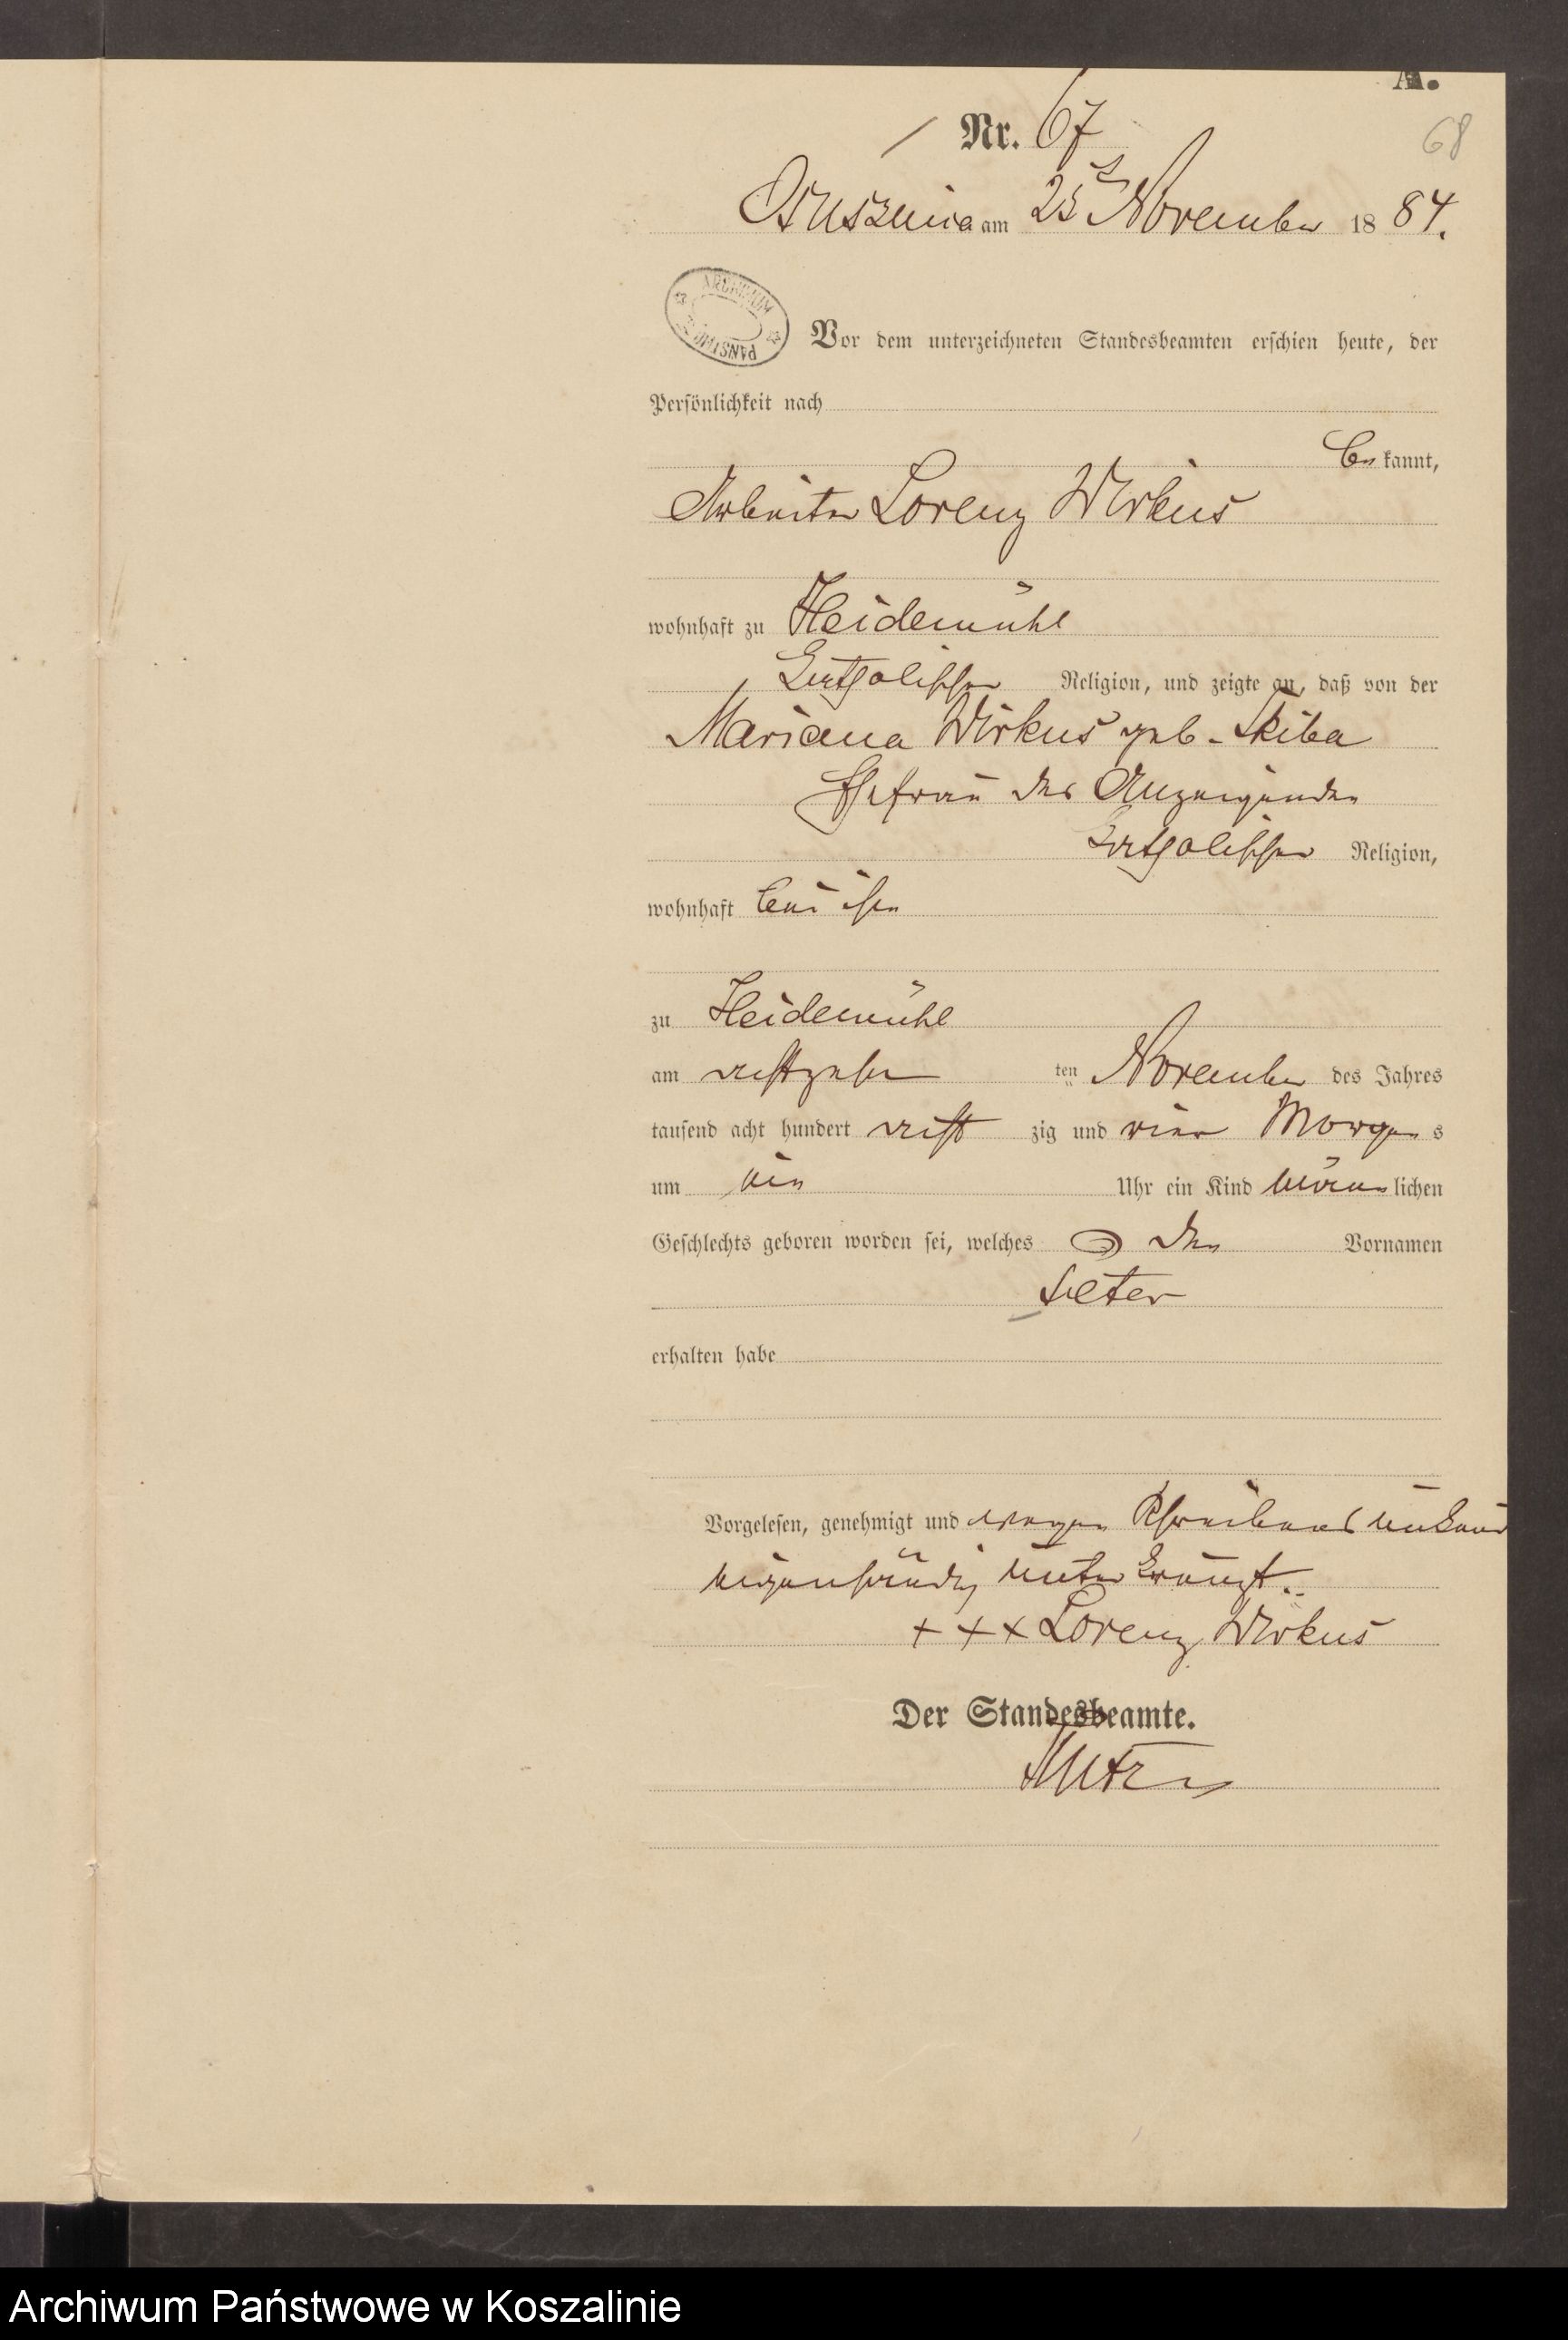 A.
Nr. 67
68
Ostuszenica am 25 November 1884.
ARCHIWUM PAŃSTWOWE
Vor dem unterzeichneten Standesbeamten erschien heute, der
Persönlichkeit nach
be kannt,
Arbeiter Lorenz Wirkus
wohnhaft zu Heidemühl
katholischer Religion, und zeigte an, daß von der
Mariana Wirkus geb. Skiba
Ehefrau des Anzeigenden
katholischer Religion,
wohnhaft bei ihm
zu Heidemühl
am achtzehn ten November des Jahres
tausend acht hundert acht zig und vier Morgens
um ein Uhr ein Kind männlichen
Geschlechts geboren worden sei, welches den Vornamen
Peter
erhalten habe
Vorgelesen, genehmigt und wegen Schreibens unkund
eigenhändig unterkreuzt.
+++ Lorenz Wirkus
Der Standesbeamte.
Archiwum Państwowe w Koszalinie